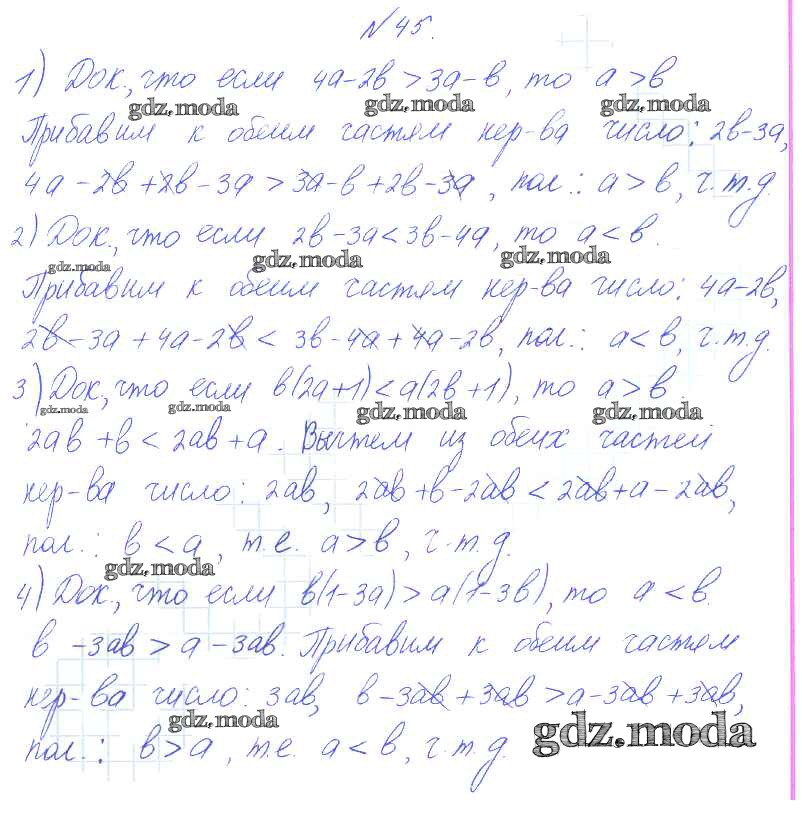 № 45.
1) Док., что если 4а-2в > 3а-в, то а > в
gdz.moda gdz.moda gdz.moda
Прибавим к обеим частям нер-ва число: 2в-3а,
4а-2в+2в-3а > 3а-в+2в-3а, пол.: а > в, ч.т.д.
2) Док., что если 2в-3а < 3в-4а, то а < в.
gdz.moda gdz.moda gdz.moda
Прибавим к обеим частям нер-ва число: 4а-2в,
2в-3а+4а-2в < 3в-4а+4а-2в, пол.: а < в, ч.т.д.
3) Док., что если в(2а+1) < а(2в+1), то а > в.
gdz.moda gdz.moda gdz.moda gdz.moda
2ав+в < 2ав+а. Вычтем из обеих частей
нер-ва число: 2ав, 2ав+в-2ав < 2ав+а-2ав,
пол.: в < а, т.е. а > в, ч.т.д.
gdz.moda
4) Док., что если в(1-3а) > а(1-3в), то а < в.
в -3ав > а -3ав. Прибавим к обеим частям
нер-ва число: 3ав, в-3ав+3ав > а-3ав+3ав,
gdz.moda gdz.moda
пол.: в > а, т.е. а < в, ч.т.д.